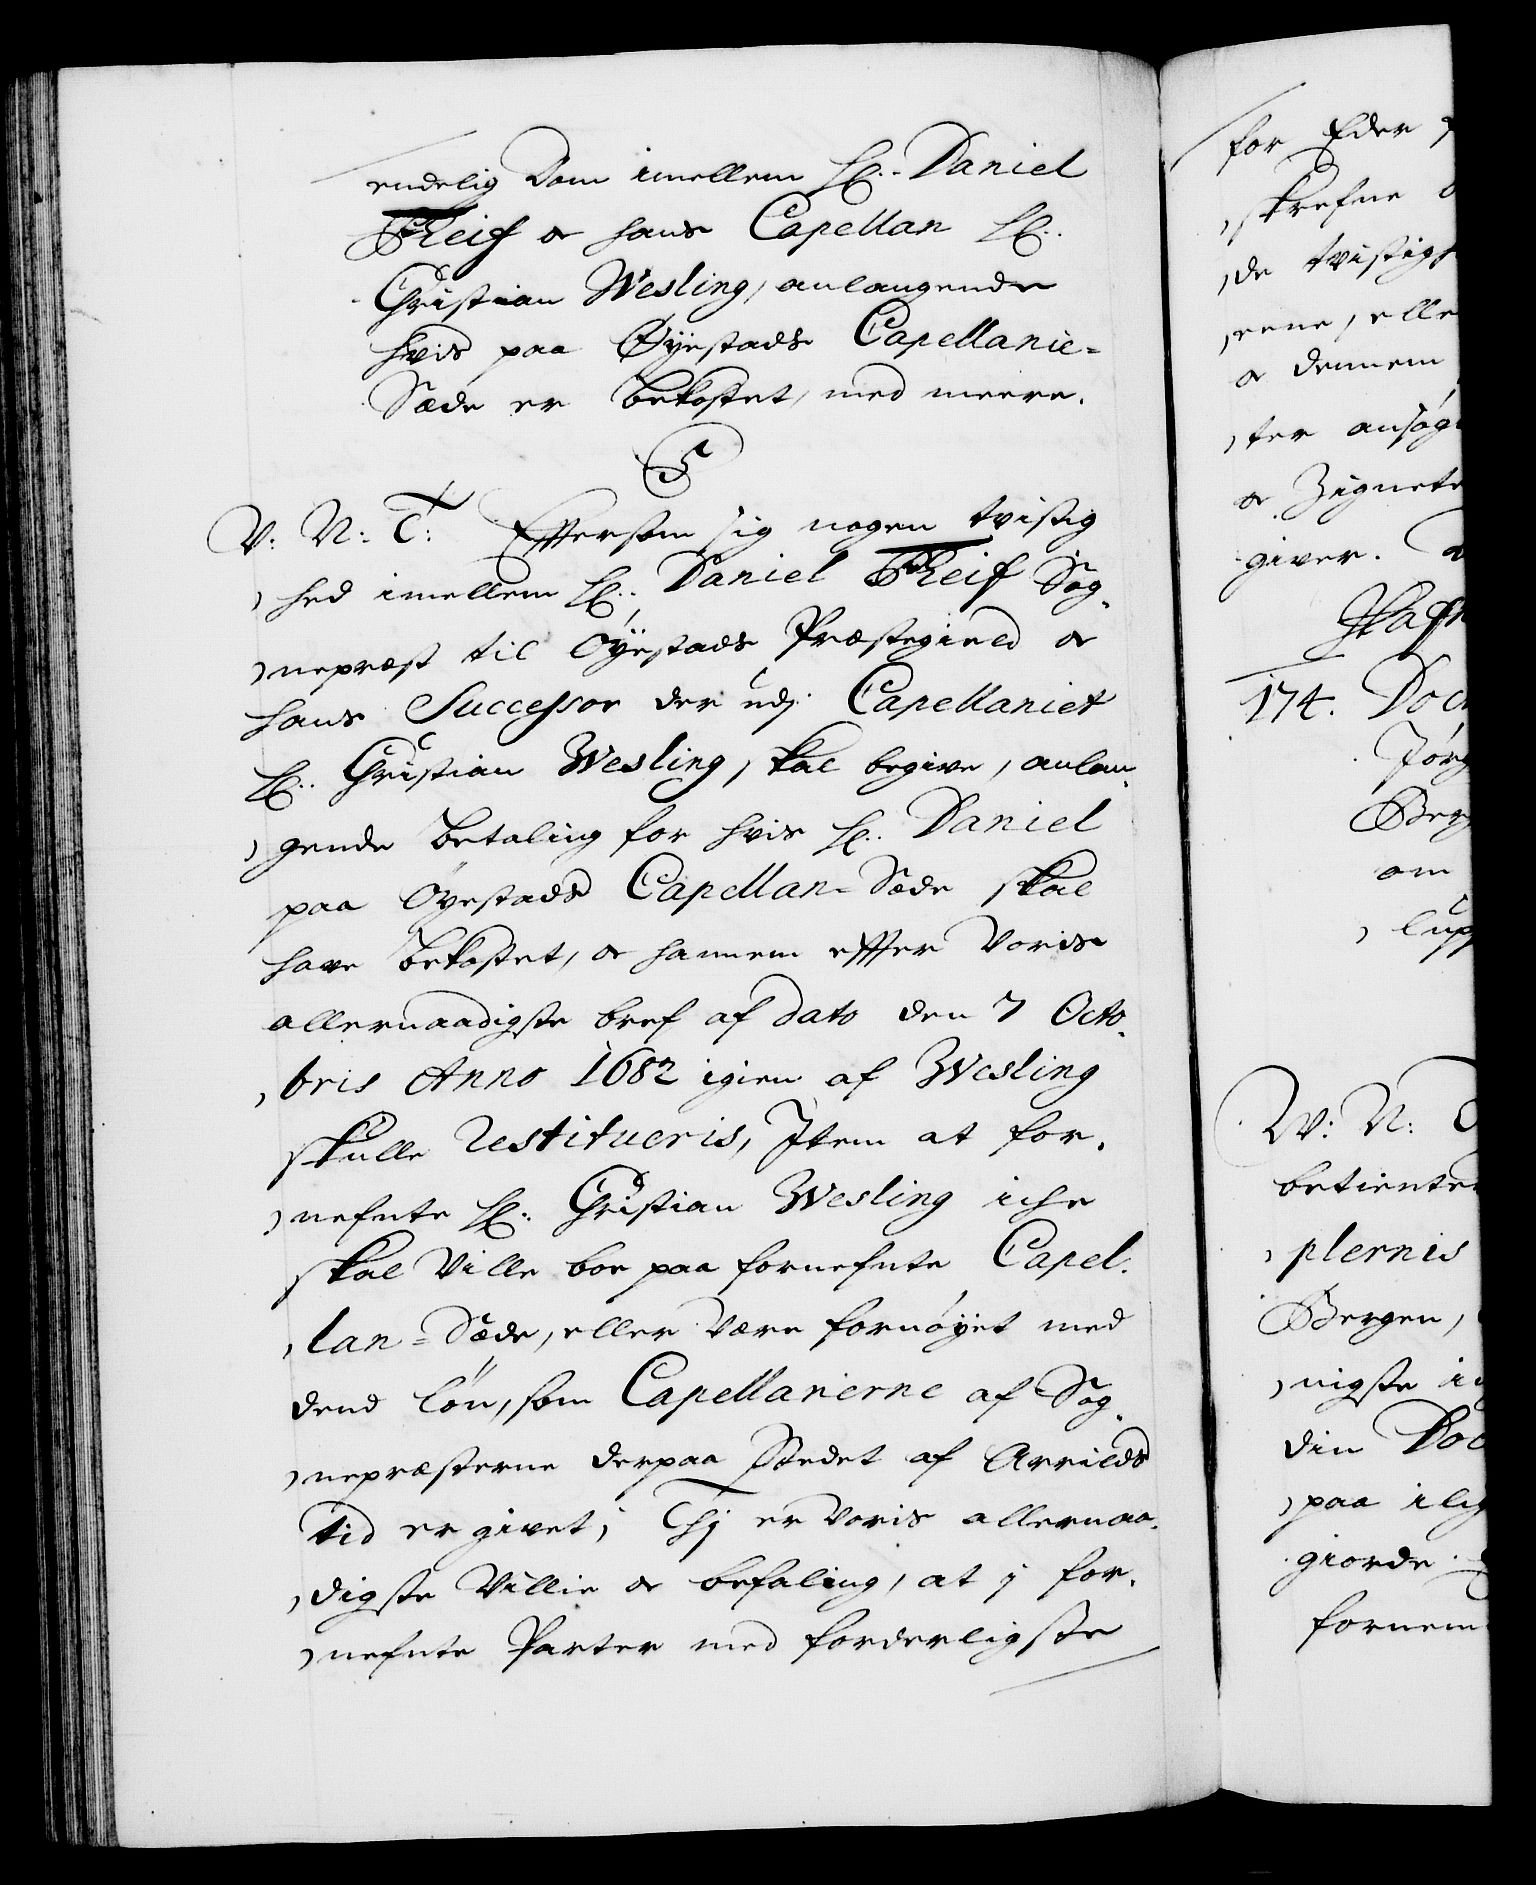 endelig Dom imellem Hr. Daniel
Reif og hans Capellan Hr.
Christian Wesling, anlangende
hvis paa Øÿestads Capellanie-
Sæde er bekostet, med meere.
V: N: T: Effersom sig nogen tvistig
hed imellem Hr. Daniel Reif Sog-
nepræst til Øÿestads Præstegield og
hans Successor der udj Capellaniet
Hr. Christian Wesling, skal begive, anlan-
gende betaling for hvis Hr. Daniel
paa Øyestads Capellan-Sæde skal
have bekostet, og hannem effter Voris
allernaadigste bref af dato den 7 Octo-
bris Anno 1682 igien af Wesling
skulle restitueris, Item at for-
nefnte Hr. Christian Wesling iche
skal Ville boe paa fornefnte Capel-
lan-Sæde, eller Være fornøÿet med
dend løn, som Capellanerne af Sog-
nepræsterne derpaa Stedet af Arrilds
tid er givet; Thj er Voris allernaa-
digste Villie og befaling, at j for-
nefnte Parter med forderligste
for Eder
skrefne
de tvistigh
eene, elle
og dennem
ter ansøg
og Zignete
giver.
174. Doct
Jørg
Berg
om
W: N:
betiente
plernis
Bergen,
nigste
din Doc
paa
giorde
fornem